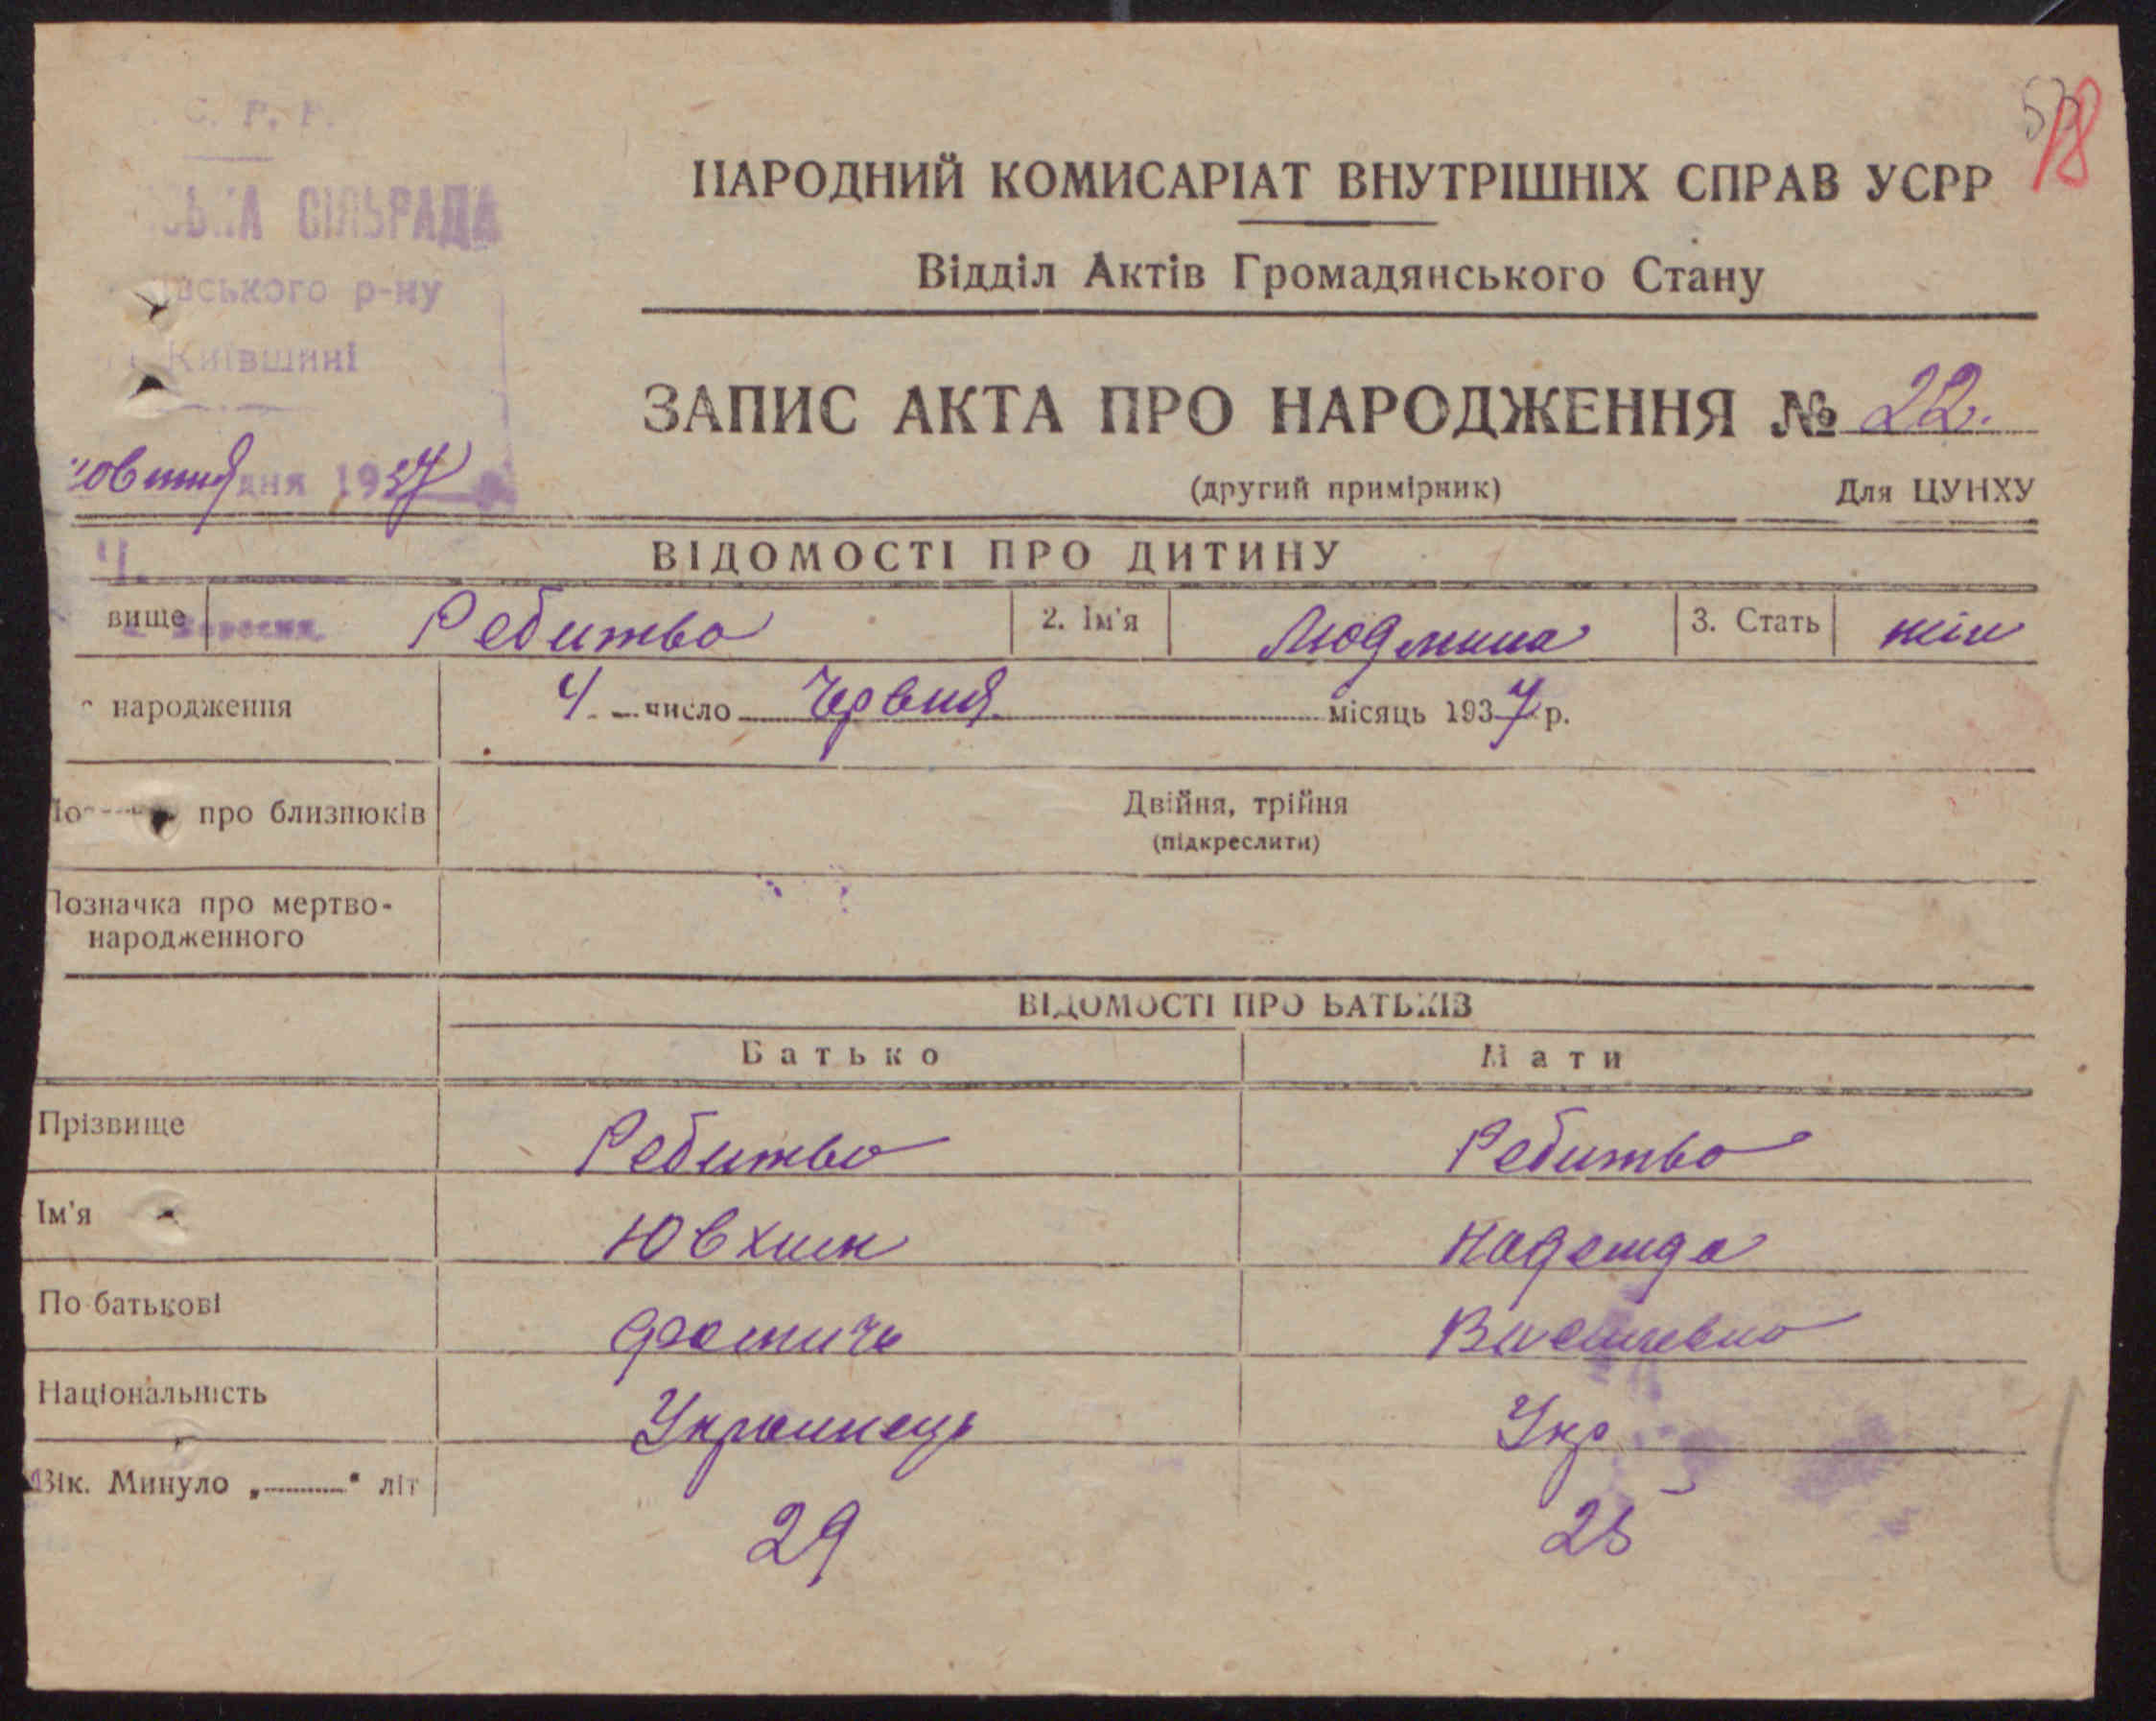 С. Р. Р.
СІЛЬРАДА
р-ну
Київщині
дня 1937
НАРОДНИЙ КОМИСАРІАТ ВНУТРІШНІХ СПРАВ УСРР
Відділ Актів Громадянського Стану
ЗАПИС АКТА ПРО НАРОДЖЕННЯ № 22.
(другий примірник) Для ЦУНХУ
Ч.
ВІДОМОСТІ ПРО ДИТИНУ
вище Ребитво 2. Ім'я Людмила 3. Стать жін
народження 4 число Червня місяць 1937 р.
про близнюків Двійня, трійня
(підкреслити)
Позначка про мертво-
народженного
ВІДОМОСТІ ПРО БАТЬКІВ
Батько Мати
Прізвище Ребитво Ребитво
Ім'я Ювхим Надежда
По батькові Василевна
Національність Українець Укр
Вік. Минуло „ “ літ 29 25